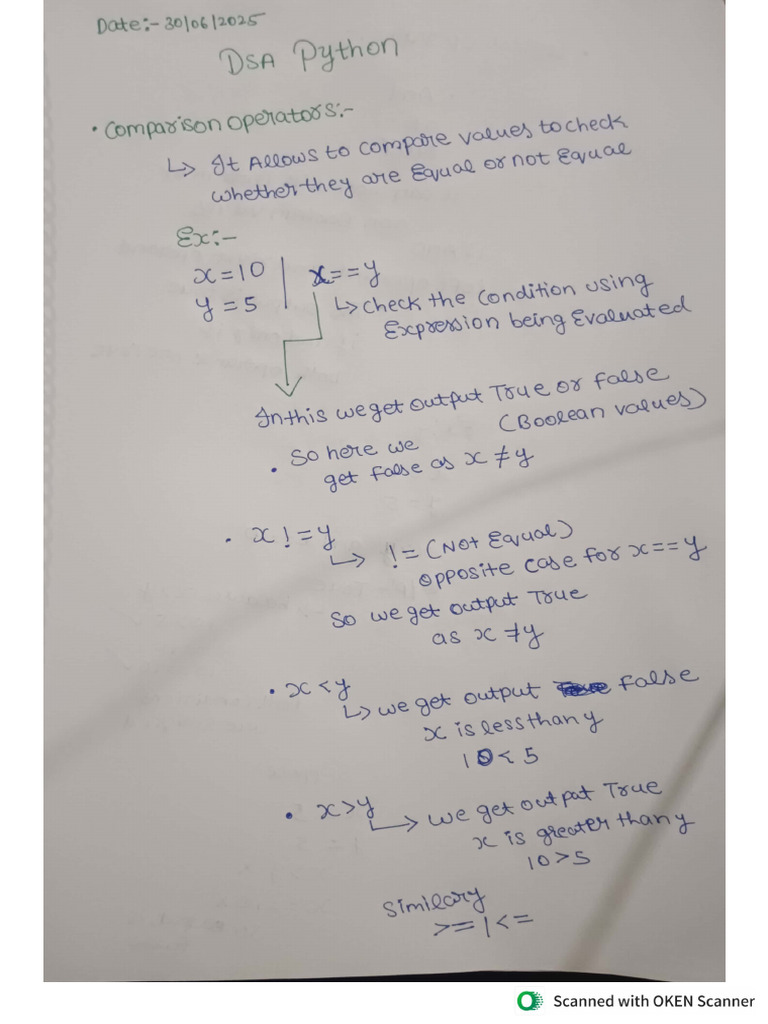 Date:- 30/06/2025
DSA Python
• Comparison operators:-
↳ It Allows to compare values to check
whether they are Equal or not Equal
Ex:-
x=10 | x==y
y=5 | ↳ check the condition using
Expression being Evaluated
In this we get output True or false
(Boolean values)
• So here we
get false as x ≠ y
• x != y
↳ != (Not Equal)
opposite case for x==y
So we get output True
as x ≠ y
• x < y
↳ we get output false
x is less than y
10 < 5
• x > y
↳ we get output True
x is greater than y
10 > 5
similary
>= | <=
Scanned with OKEN Scanner